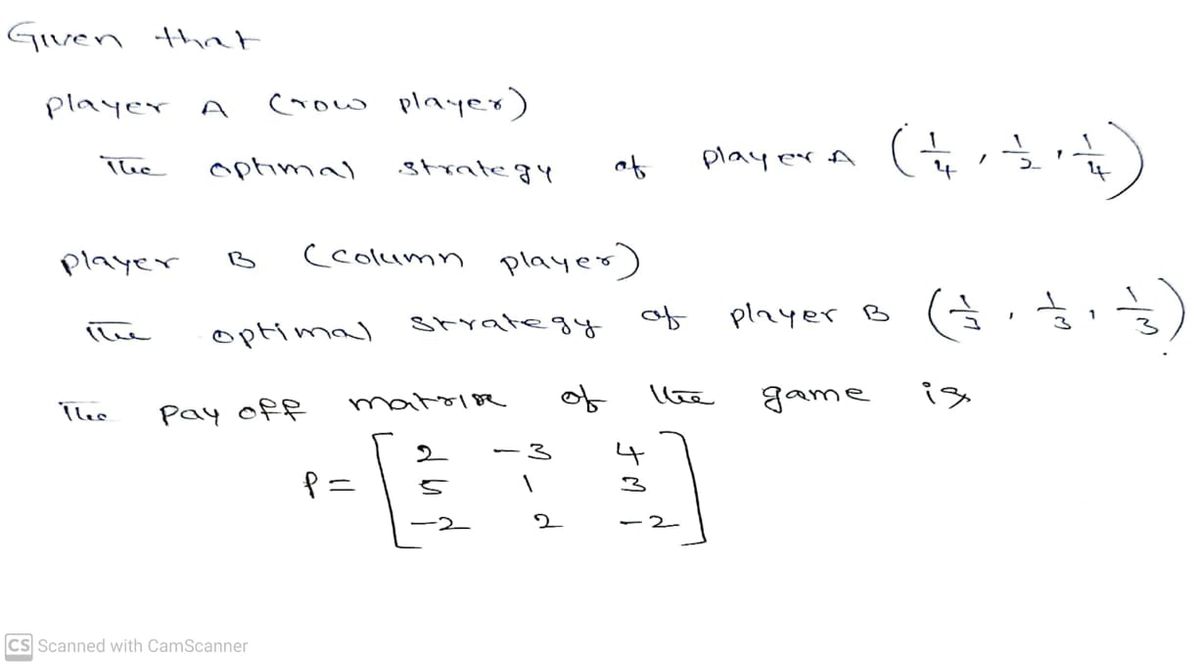 Given that
player A (row player)
The optimal strategy of player A (1/4, 1/2, 1/4)
player B (column player)
The optimal strategy of player B (1/3, 1/3, 1/3)
The pay off matrix of the game is
P = [ 2 -3 4
5 1 3
-2 2 -2 ]
CS Scanned with CamScanner